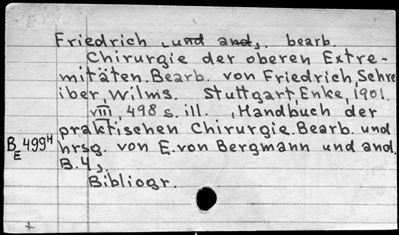 Friedrich, und and., bearb.
Chirurgie der oberen Extre-
mitäten. Bearb. von Friedrich, Schre
iber, Wilms. Stuttgart, Enke, 1901.
VIII, 498 s. ill. , Handbuch der
praktischen Chirurgie. Bearb. und
BE 499⁴ hrsg. von E. von Bergmann und and.
B. 4,
Bibliogr.